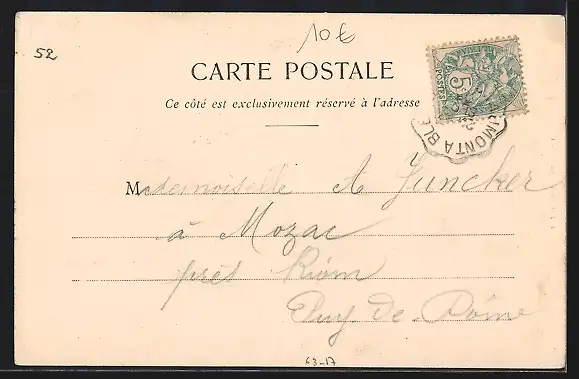 52
10€
CARTE POSTALE
Ce côté est exclusivement réservé à l'adresse
POSTES
5
MONTA BLE
Mademoiselle A Juncker
à Mozac
près Riom
Puy-de-Dôme
63-17